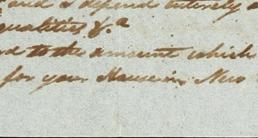 and I depend entirely a
qualities &.a
rd to the amount which
for your House in New